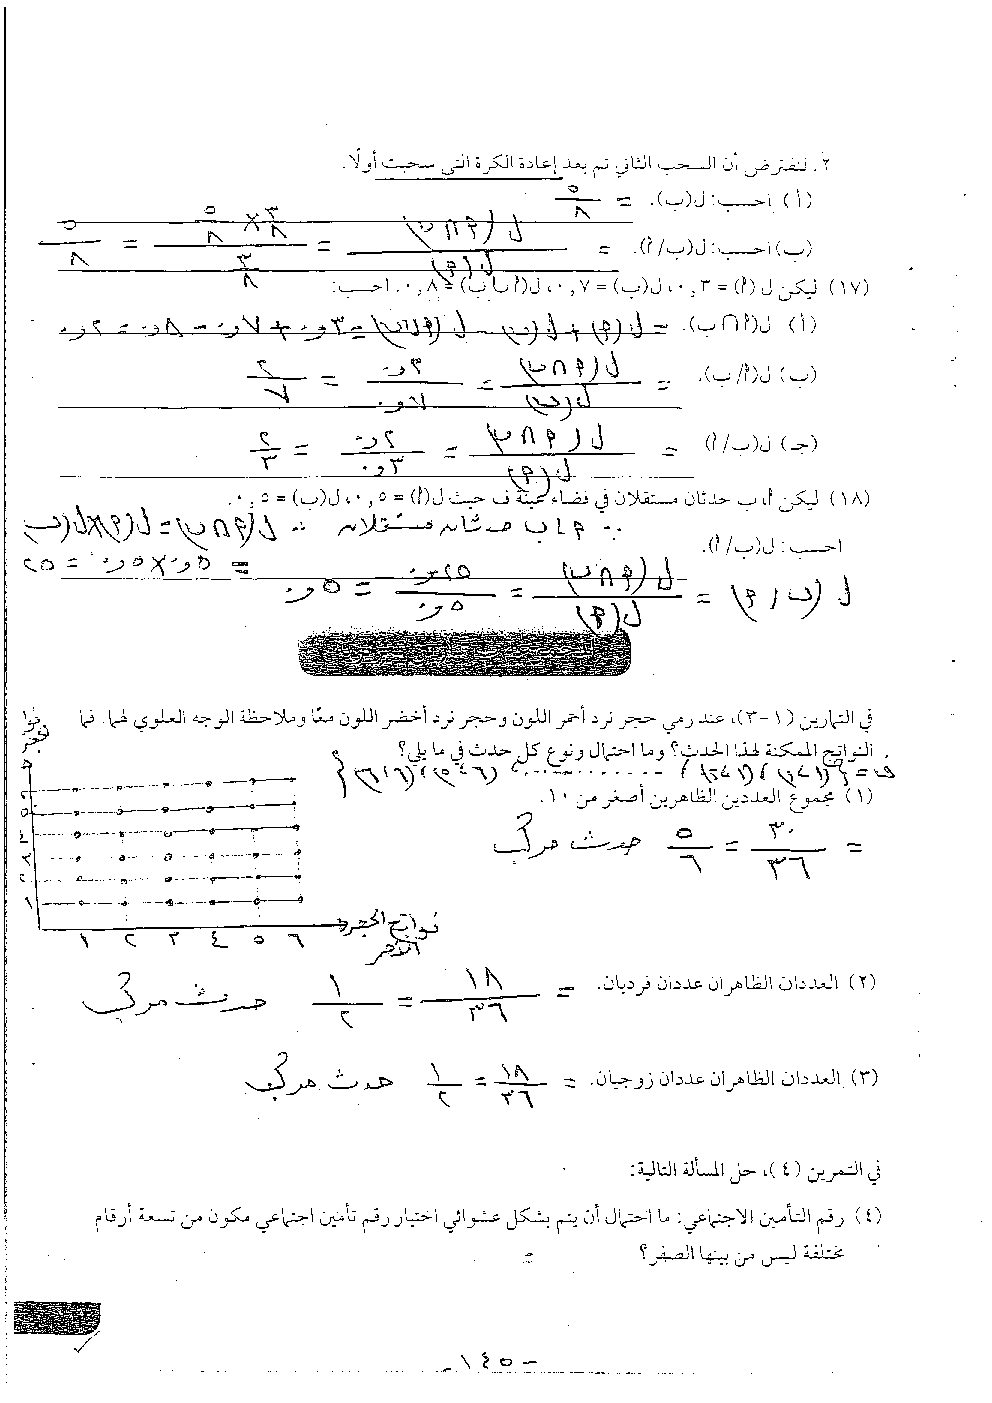 ٢. لنفترض أن السحب الثاني تم بعد إعادة الكرة التي سحبت أولًا.
(أ) احسب: ل(ب). = ٥/٨
(ب) احسب: ل(ب/أ). = ل(أ∩ب)/ل(أ) = (٣/٨ × ٥/٨)/(٣/٨) = ٥/٨
(١٧) ليكن ل(أ) = ٠,٣، ل(ب) = ٠,٧، ل(أ∪ب) = ٠,٨. احسب:
(أ) ل(أ∩ب). = ل(أ) + ل(ب) - ل(أ∪ب) = ٠,٣ + ٠,٧ - ٠,٨ = ٠,٢
(ب) ل(أ/ب). = ل(أ∩ب)/ل(ب) = ٠,٢/٠,٧ = ٢/٧
(جـ) ل(ب/أ) = ل(أ∩ب)/ل(أ) = ٠,٢/٠,٣ = ٢/٣
(١٨) ليكن أ، ب حدثان مستقلان في فضاء عينة ف حيث ل(أ) = ٠,٥، ل(ب) = ٠,٥.
∵ أ، ب حدثان مستقلان ∴ ل(أ∩ب) = ل(أ)×ل(ب)
احسب: ل(ب/أ). = ٠,٥ × ٠,٥ = ٢٥
ل(ب/أ) = ل(أ∩ب)/ل(أ) = ٠,٢٥/٠,٥ = ٠,٥
في التمارين (١-٣)، عند رمي حجر نرد أحمر اللون وحجر نرد أخضر اللون معًا وملاحظة الوجه العلوي لهما. فما
النواتج الممكنة لهذا الحدث؟ وما احتمال ونوع كل حدث في ما يلي؟
ف = {(١،١)، (١،٢)، ............ (٦،٥)، (٦،٦)}
(١) مجموع العددين الظاهرين أصغر من ١٠.
= ٣٠/٣٦ = ٥/٦ حدث مركب
١ ٢ ٣ ٤ ٥ ٦
نواتج الحجر
الأحمر
(٢) العددان الظاهران عددان فرديان. = ١٨/٣٦ = ١/٢ حدث مركب
(٣) العددان الظاهران عددان زوجيان. = ١٨/٣٦ = ١/٢ حدث مركب
في التمرين (٤)، حل المسألة التالية:
(٤) رقم التأمين الاجتماعي: ما احتمال أن يتم بشكل عشوائي اختيار رقم تأمين اجتماعي مكون من تسعة أرقام
مختلفة ليس من بينها الصفر؟ =
-١٤٥-